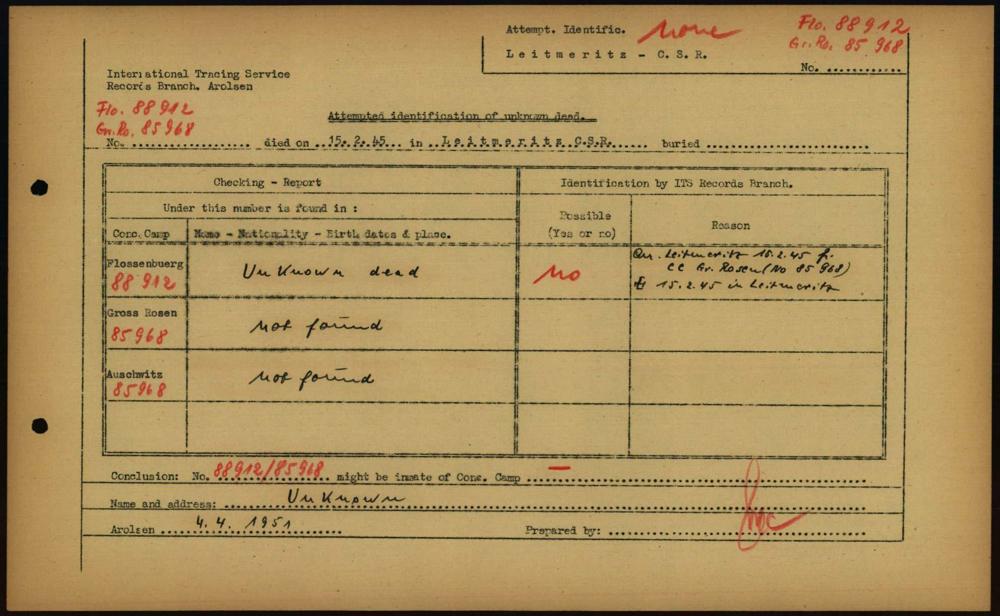 Attempt. Identific. None
Flo. 88912
Gr. Ro. 85 968
Leitmeritz - C.S.R.
No. ............
International Tracing Service
Records Branch. Arolsen
Flo. 88912
Gr. Ro. 85968
Attempted identification of unknown dead.
No. .................... died on ..15.2.45... in ..Leitmeritz C.S.R....... buried ..........................
Checking - Report
Identification by ITS Records Branch.
Under this number is found in :
Conc. Camp
Name - Nationality - Birth dates & place.
Possible
(Yes or no)
Reason
Flossenbuerg
88912
Unknown dead
No
Leitmeritz 15.2.45 fr.
CC Gr. Rosen (No 85 968)
15.2.45 in Leitmeritz
Gross Rosen
85968
not found
Auschwitz
85968
not found
Conclusion: No. 88912/85968 might be inmate of Conc. Camp — ..........................
Name and address: Unknown
Arolsen 4.4. 1951
Prepared by: ..........................